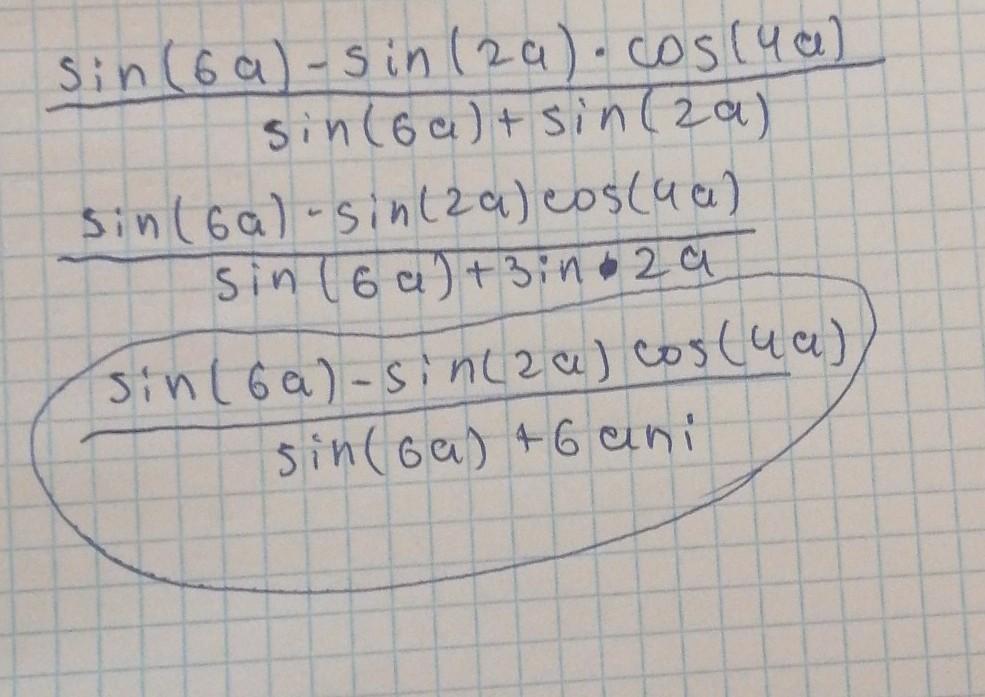 sin(6a)-sin(2a)·cos(4a)
sin(6a)+sin(2a)
sin(6a)-sin(2a)cos(4a)
sin(6a)+3in•2a
sin(6a)-sin(2a)cos(4a)
sin(6a)+6ani